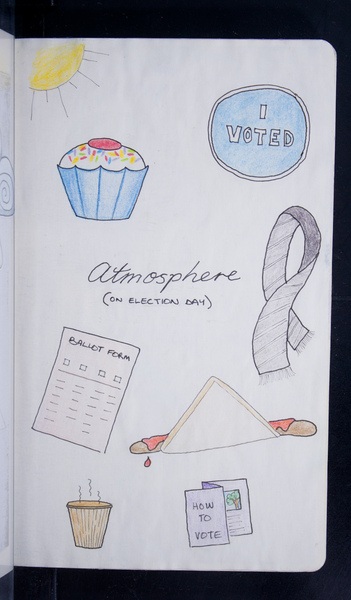 I
VOTED
Atmosphere
(ON ELECTION DAY)
BALLOT FORM
HOW
TO
VOTE